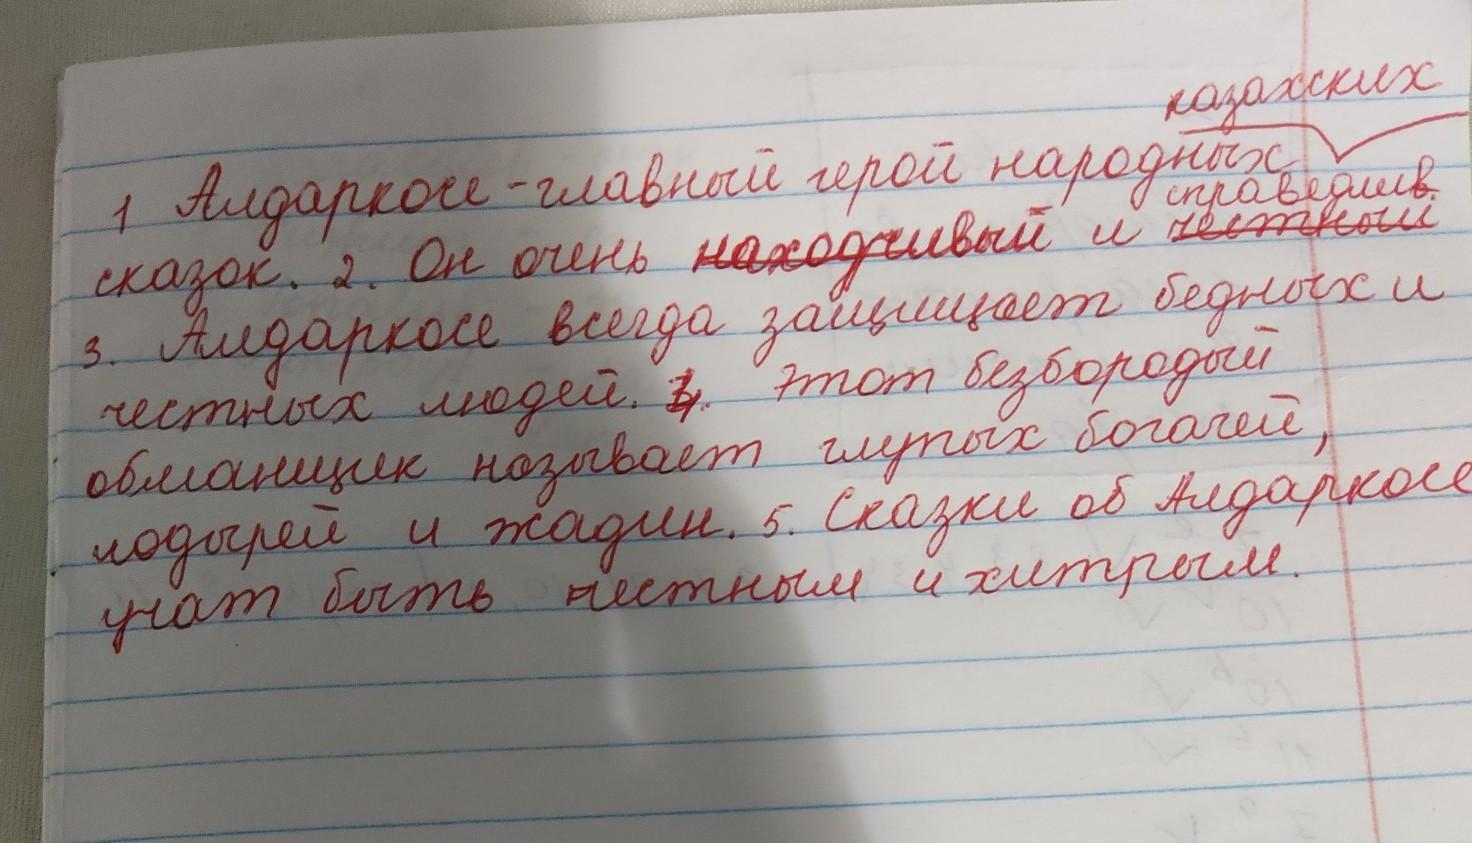 казахских
1 Алдаркосе - главный герой народных
справедлив.
сказок. 2. Он очень находчивый и честный
3. Алдаркосе всегда защищает бедных и
честных людей. 4. Этот безбородый
обманщик называет глупых богачей,
лодырей и жадин. 5. Сказки об Алдаркосе
учат быть честным и хитрым.